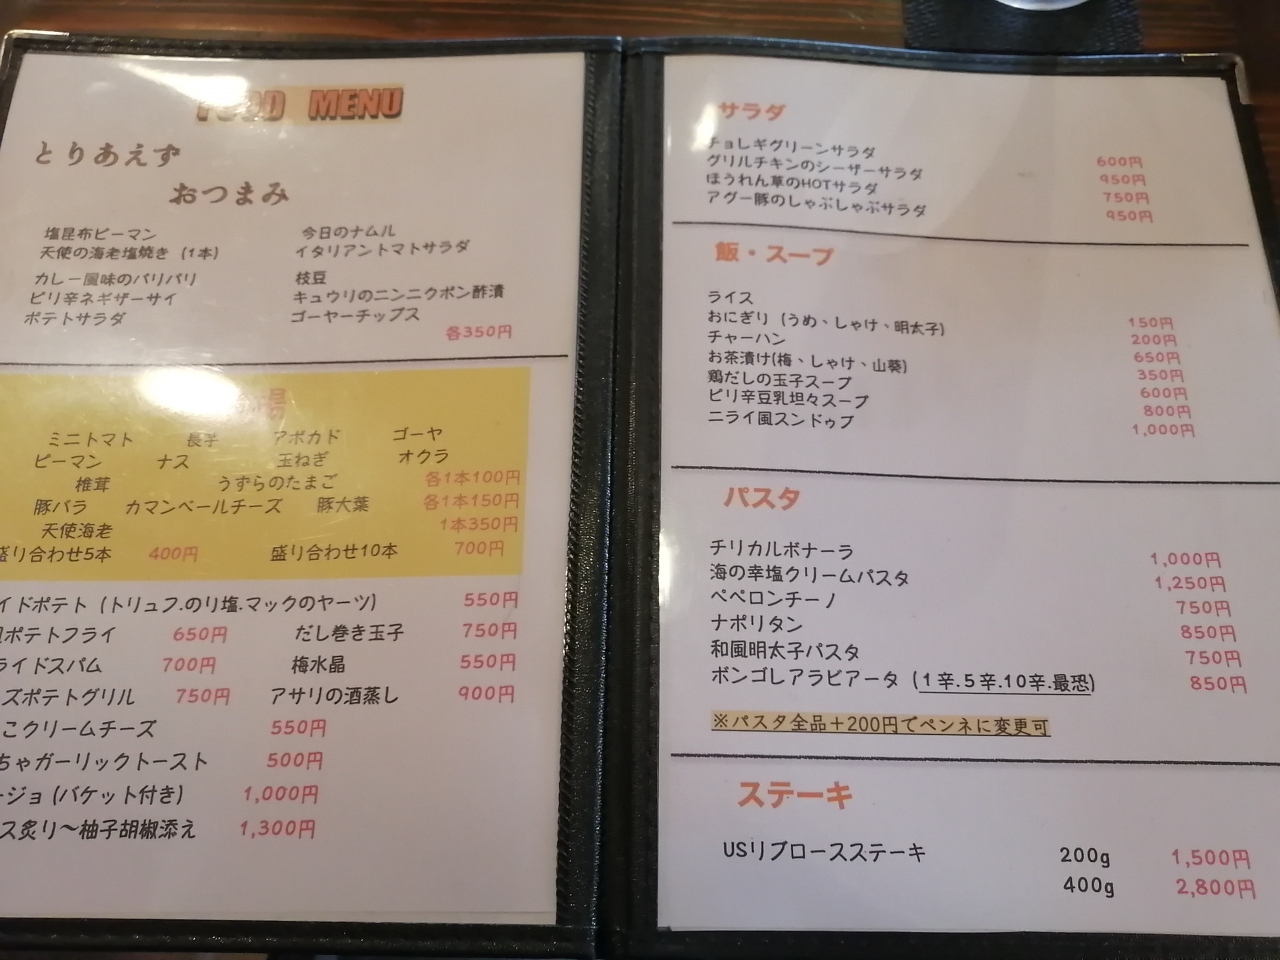 FOOD MENU
とりあえず
おつまみ
塩昆布ピーマン 今日のナムル
天使の海老塩焼き (1本) イタリアントマトサラダ
カレー風味のパリパリ 枝豆
ピリ辛ネギザーサイ キュウリのニンニクポン酢漬
ポテトサラダ ゴーヤーチップス
各350円
場
ミニトマト 長芋 アボカド ゴーヤ
ピーマン ナス 玉ねぎ オクラ
椎茸 うずらのたまご 各1本100円
豚バラ カマンベールチーズ 豚大葉 各1本150円
天使海老 1本350円
盛り合わせ5本 400円 盛り合わせ10本 700円
イドポテト (トリュフ.のり塩.マックのヤーツ) 550円
ポテトフライ 650円 だし巻き玉子 750円
ライドスパム 700円 梅水晶 550円
ズポテトグリル 750円 アサリの酒蒸し 900円
こクリームチーズ 550円
ちゃガーリックトースト 500円
ージョ (バケット付き) 1,000円
ス炙り〜柚子胡椒添え 1,300円
サラダ
チョレギグリーンサラダ 600円
グリルチキンのシーザーサラダ 950円
ほうれん草のHOTサラダ 750円
アグー豚のしゃぶしゃぶサラダ 950円
飯・スープ
ライス 150円
おにぎり (うめ、しゃけ、明太子) 200円
チャーハン 650円
お茶漬け(梅、しゃけ、山葵) 350円
鶏だしの玉子スープ 600円
ピリ辛豆乳坦々スープ 800円
ニライ風スンドゥブ 1,000円
パスタ
チリカルボナーラ 1,000円
海の幸塩クリームパスタ 1,250円
ペペロンチーノ 750円
ナポリタン 850円
和風明太子パスタ 750円
ボンゴレアラビアータ (1辛.5辛.10辛.最恐) 850円
※パスタ全品+200円でペンネに変更可
ステーキ
USリブロースステーキ 200g 1,500円
400g 2,800円